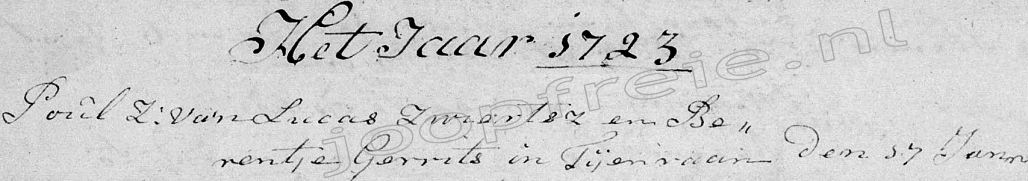 Het Jaar 1723
Poûl Z: van Lucas Zwiertsz en Be„
rentje Gerrits in Tijenraan den 17 Jann
joopfreie.nl